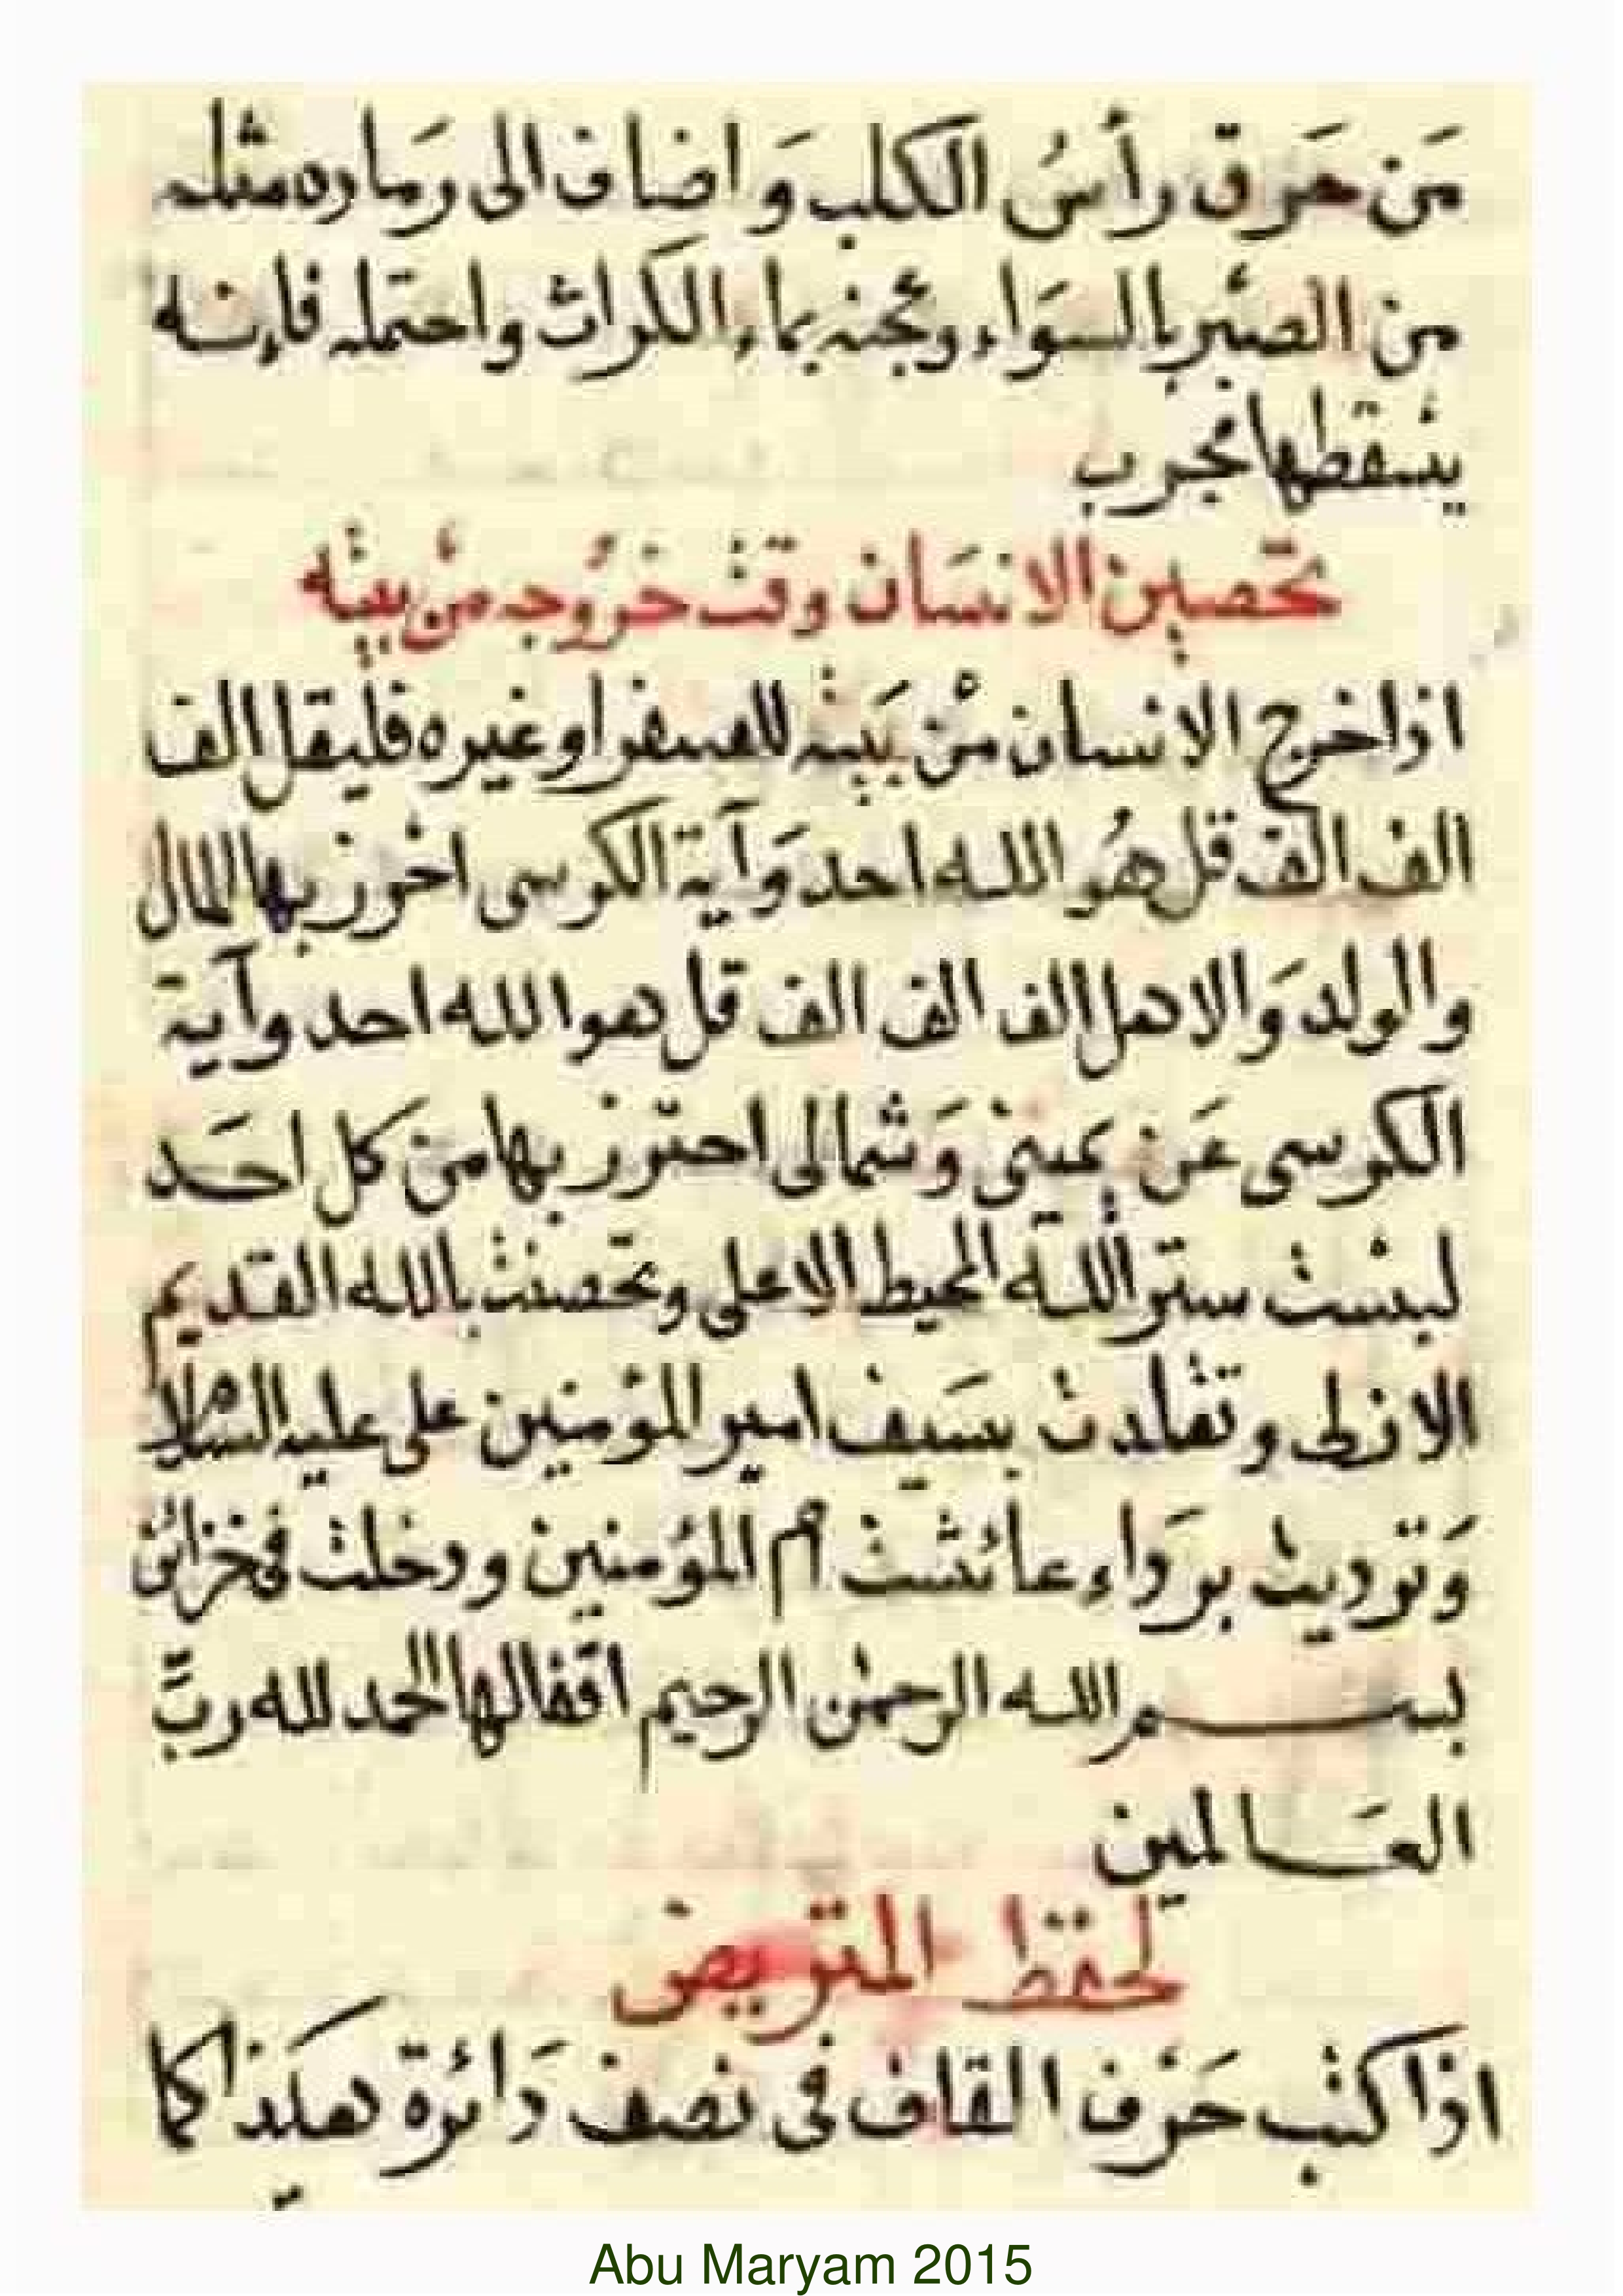 مَن حَرَق رأسُ الكلب وَاضاف الى رَماده مثله
من الصبْر بالسوَاء وعجنه بماء الكَراث واحتمله فإنه
يسْقطها مجرب
تحصين الانسَان وقتْ خرُوجه منْ بيتْه
اذا خرج الانسان منْ بَيته للسفر او غيره فليقل الف
الف الف قل هُو الله احد وَآية الكرسى احرز بها المال
والولد وَالاهل الف الف الف قل هو الله احد وآية
الكرسى عَن يمينى وَشمالى احترز بها من كل احَد
لبسْت ستر الله المحيط الاعلى وتحصنت بالله القديم
الازلى وتقلدت بسَيف امير المؤمنين على عليه السلام
وَترديت بردَاء عائشت ام المؤمنين ودخلت فى خزائن
بسم الله الرحمن الرحيم اقفالها الحمد لله ربِّ
العَالمين
لحفظ
اذا كتب حَرْف القاف فى نصف دَائرة هكَذا كما
ـيـ
Abu Maryam 2015